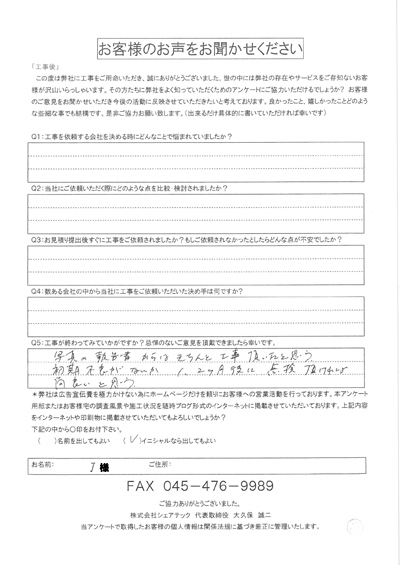 お客様のお声をお聞かせください
「工事後」
この度は弊社に工事をご用命いただき、誠にありがとうございました。世の中には弊社の存在やサービスをご存知ないお客
様が沢山いらっしゃいます。その方たちに弊社をよく知っていただくためのアンケートにご協力いただけるでしょうか? お客様
のご意見をお聞かせいただき今後の活動に反映させていただきたいと考えております。良かったこと、嬉しかったことどのよう
な些細な事でも結構です、是非ご協力お願い致します。(出来るだけ具体的に書いていただければ幸いです)
Q1:工事を依頼する会社を決める時にどんなことで悩まれていましたか?
Q2:当社にご依頼いただく際にどのような点を比較・検討されましたか?
Q3:お見積り提出後すぐに工事をご依頼されましたか?もしご依頼されなかったとしたらどんな点が不安でしたか?
Q4:数ある会社の中から当社に工事をご依頼いただいた決め手は何ですか?
Q5:工事が終わってみていかがですか?忌憚のないご意見を頂戴できましたら幸いです。
写真の報告書からはきちんと工事頂いたと思う
初期不良がないか 1、2ヶ月後に点検頂ければ
尚良いと思う
*弊社は広告宣伝費を極力かけない為にホームページだけを頼りにお客様への営業活動を行っております。本アンケート
用紙またはお客様宅の調査風景や施工状況を随時ブログ形式のインターネットに掲載させていただいております。上記内容
をインターネットや印刷物に掲載させていただいてもよろしいでしょうか?
下記の中から○印をお付下さい。
( )名前を出してもよい (✓)イニシャルなら出してもよい
お名前: 様 ご住所:
FAX 045-476-9989
ご協力ありがとうございました。
株式会社シェアテック 代表取締役 大久保 誠二
当アンケートで取得したお客様の個人情報は関係法規に基づき厳正に管理いたします。